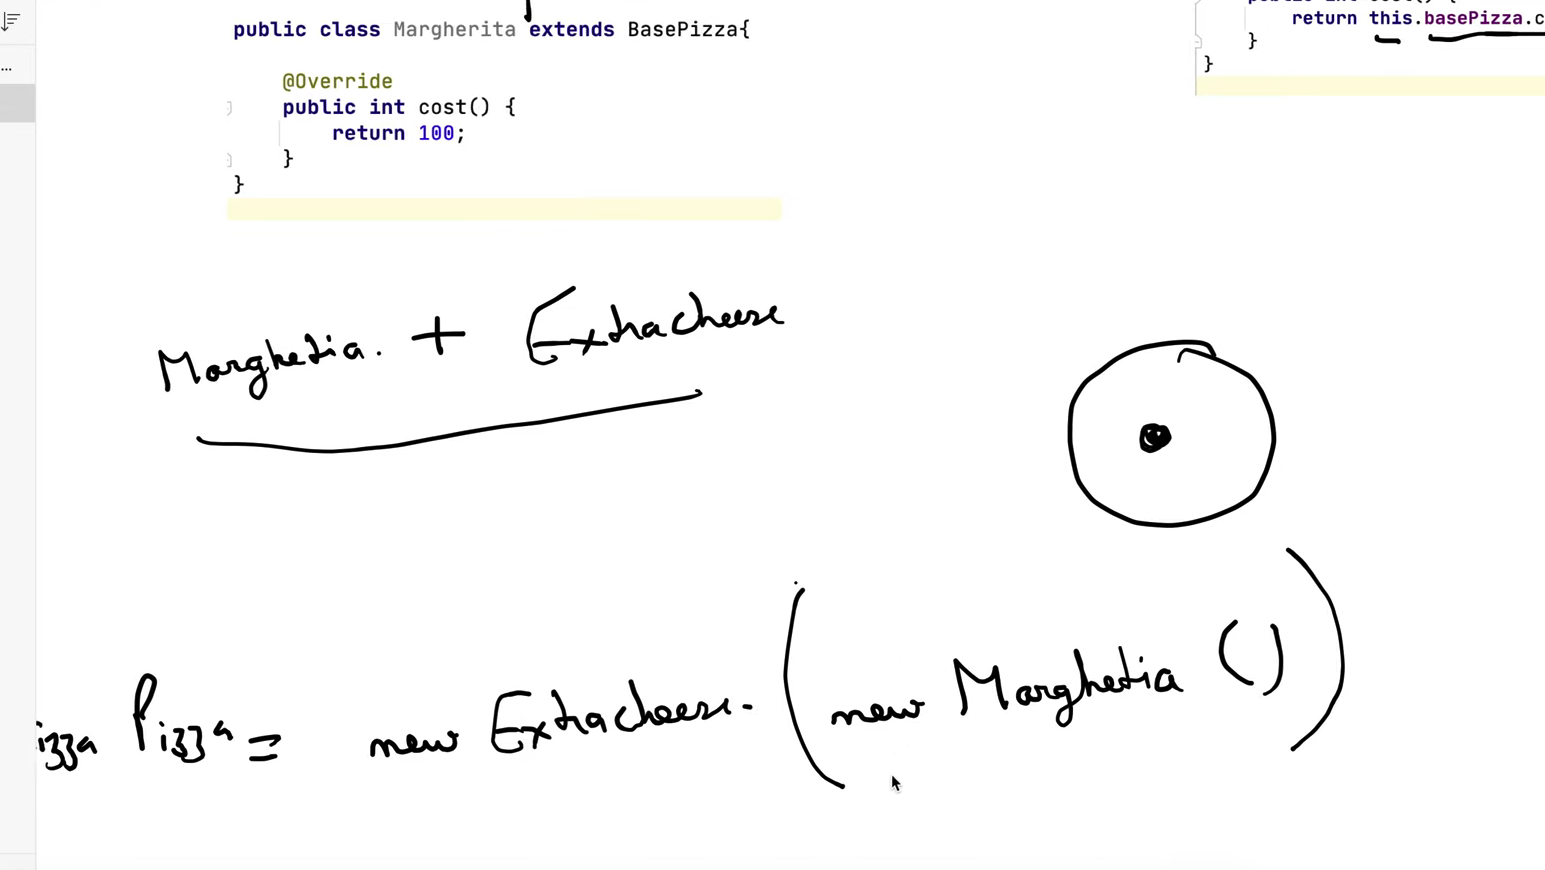 public class Margherita extends BasePizza{
@Override
public int cost() {
return 100;
}
}
return this.basePizza.c
}
}
Marghetia. + Extracheese
izza Pizza = new Extracheese. (new Marghetia ())